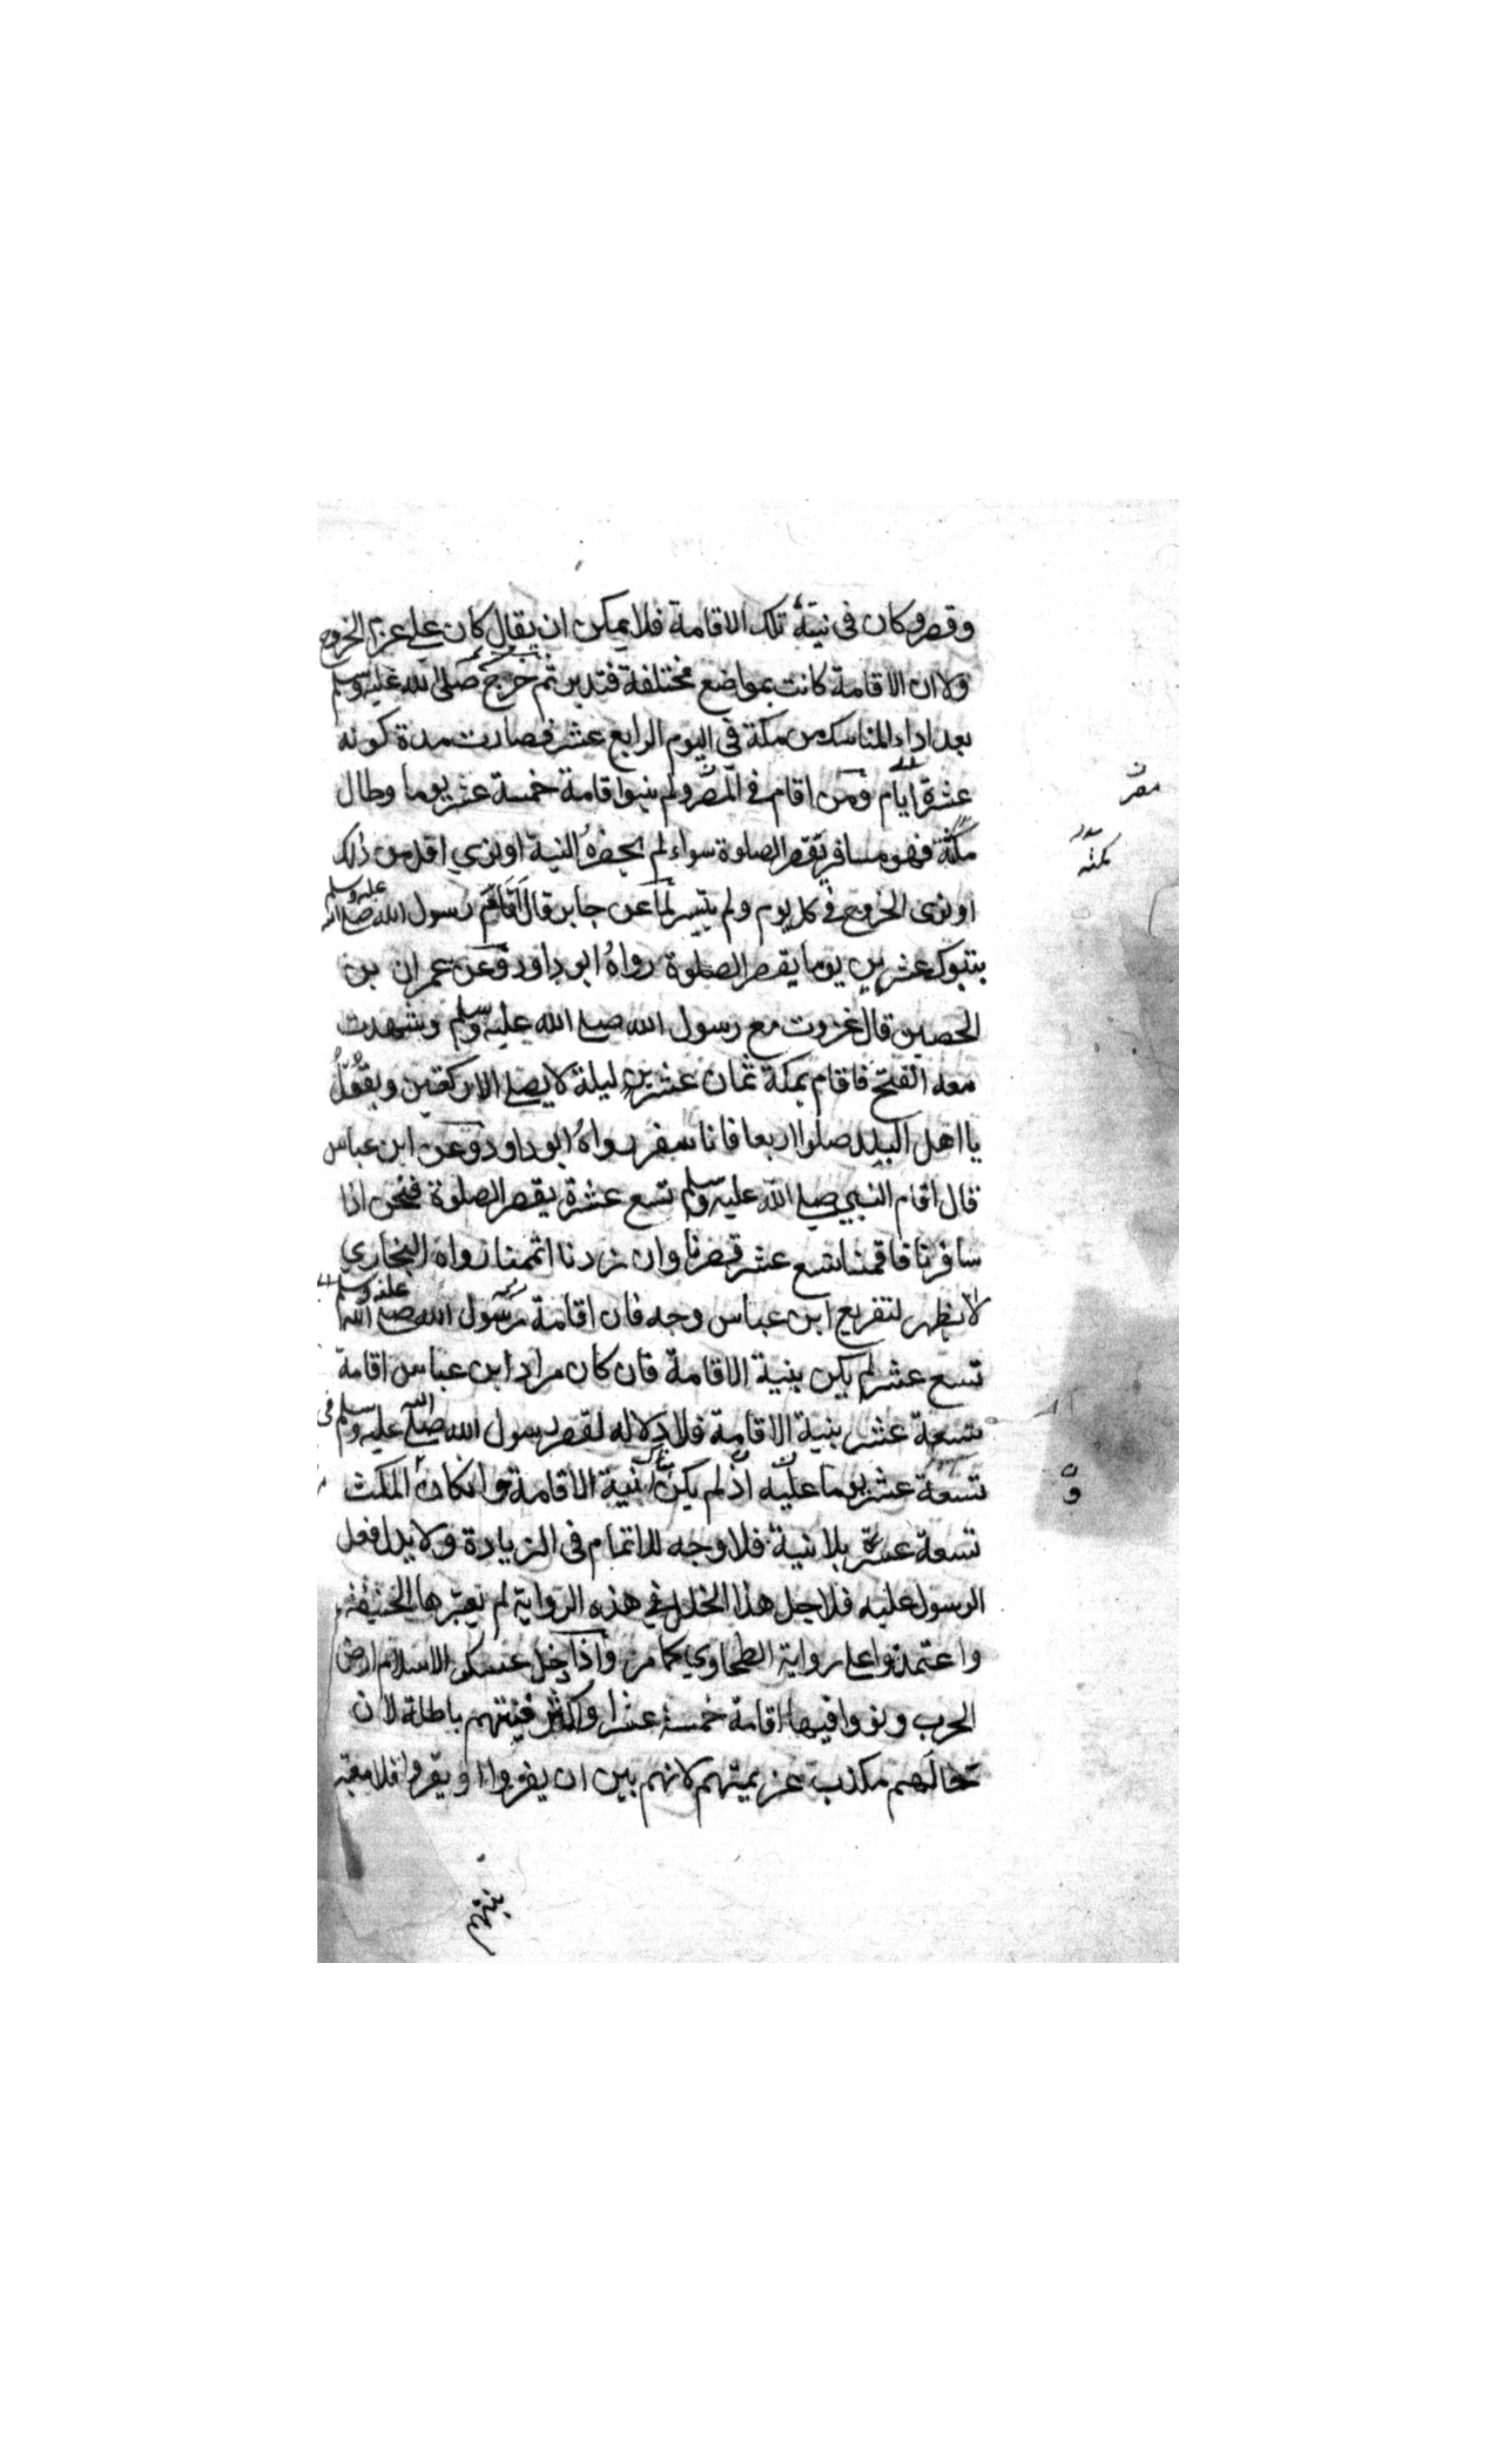 وقصر وكان في نيته تلك الاقامة فلا يمكن ان يقال كان على عزم الخروج
ولا ان الاقامة كانت بمواضع مختلفة فتدبر ثم خرج صلى الله عليه وسلم
بعد اداء المناسك من مكة في اليوم الرابع عشر فصارت مدة كونه
عشرة ايام ومن اقام في المصر ولم ينو اقامة خمسة عشر يوما وطال
مكثه فهو مسافر يقصر الصلوة سواء لم يحضره النية او نوي اقل من ذلك
او نوى الخروج في كل يوم ولم يتيسر لما عن جابر قال اقام رسول الله صلى الله عليه وسلم
بتبوك عشرين يوما يقصر الصلوة رواه ابو داود وعن عمران بن
الحصين قال غزوت مع رسول الله صلى الله عليه وسلم وشهدت
معه الفتح فاقام بمكة ثمان عشرين ليلة لا يصلي الا ركعتين ويقول
يا اهل البلد صلوا اربعا فانا سفر رواه ابو داود وعن ابن عباس
قال اقام النبي صلى الله عليه وسلم تسع عشرة يقصر الصلوة فنحن اذا
سافرنا فاقمنا تسع عشر قصرنا وان زدنا اتممنا رواه البخاري
لا يظهر لتفريع ابن عباس وجه فان اقامة رسول الله صلى الله عليه وسلم
تسع عشر لم يكن بنية الاقامة فان كان مراد ابن عباس اقامة
تسعة عشر بنية الاقامة فلا دلاله لقصر رسول الله صلى الله عليه وسلم في
تسعة عشر يوما عليه اذ لم يكن نية الاقامة وان كان المكث
تسعة عشر بلا نية فلا وجه للاتمام في الزيادة ولا يدل فعل
الرسول عليه فلاجل هذا الخلل في هذه الرواية لم يعتبرها الحنيفة
واعتمدوا على رواية الطحاوي كما مر واذا دخل عسكر الاسلام ارض
الحرب ونووا فيها اقامة خمسة عشر او اكثر فنيتهم باطلة لان
حالهم مكذب عزيمتهم لانهم بين ان يفروا او يقروا فلا معتبر
بنيتهم